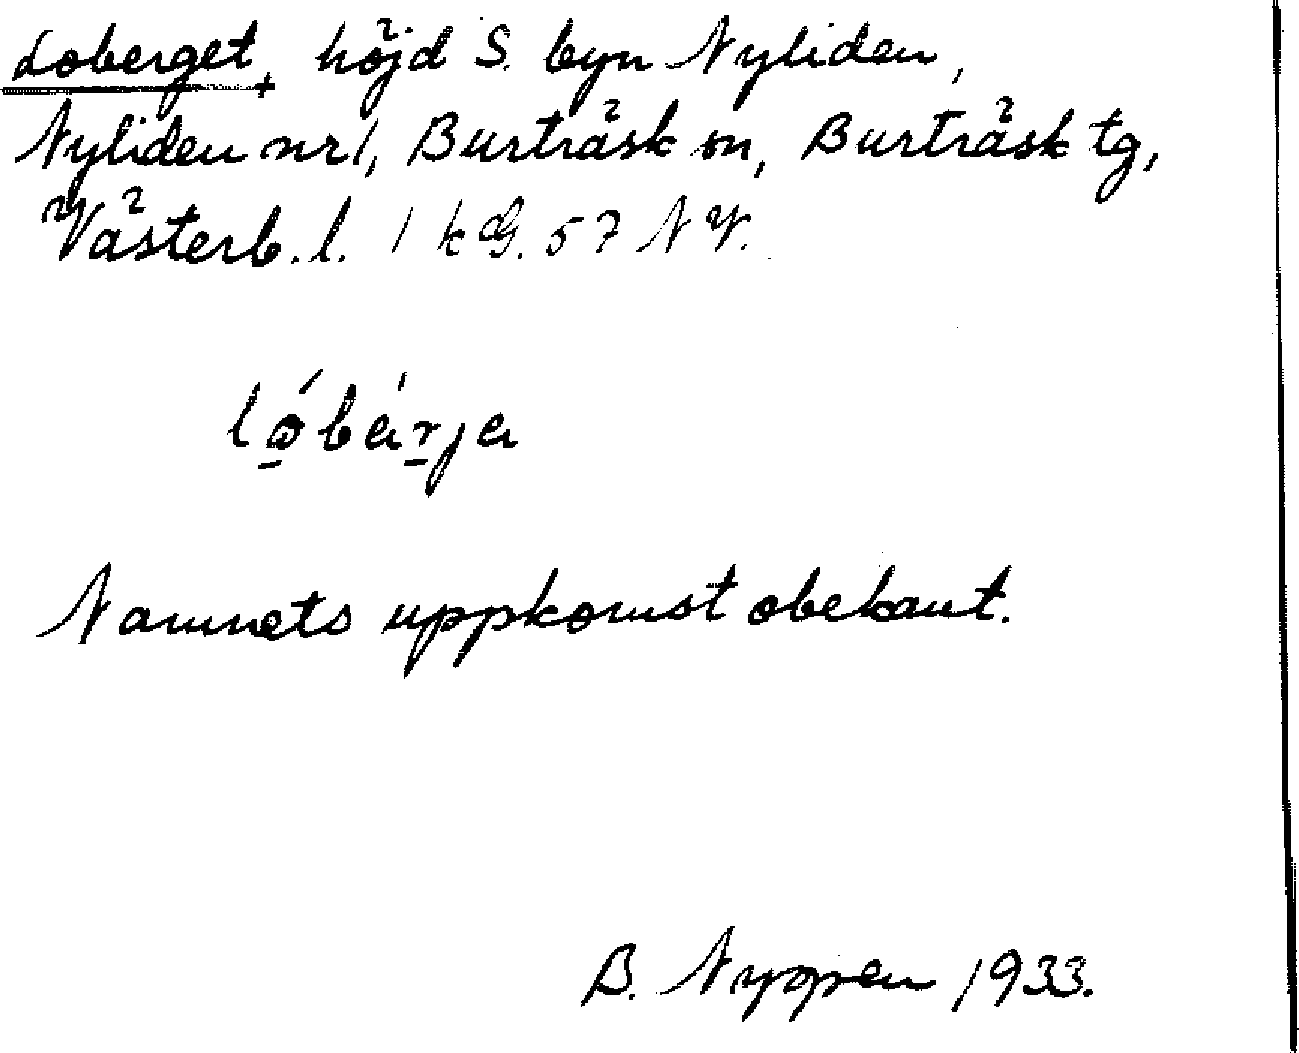 Loberget, höjd S. byn Nyliden,
Nyliden nr 1, Burträsk sn, Burträsk tg,
Västerb. l. 1 k G. 57 N V.
lǫ́bá̱rja
Namnets uppkomst obekant.
B. 1933.